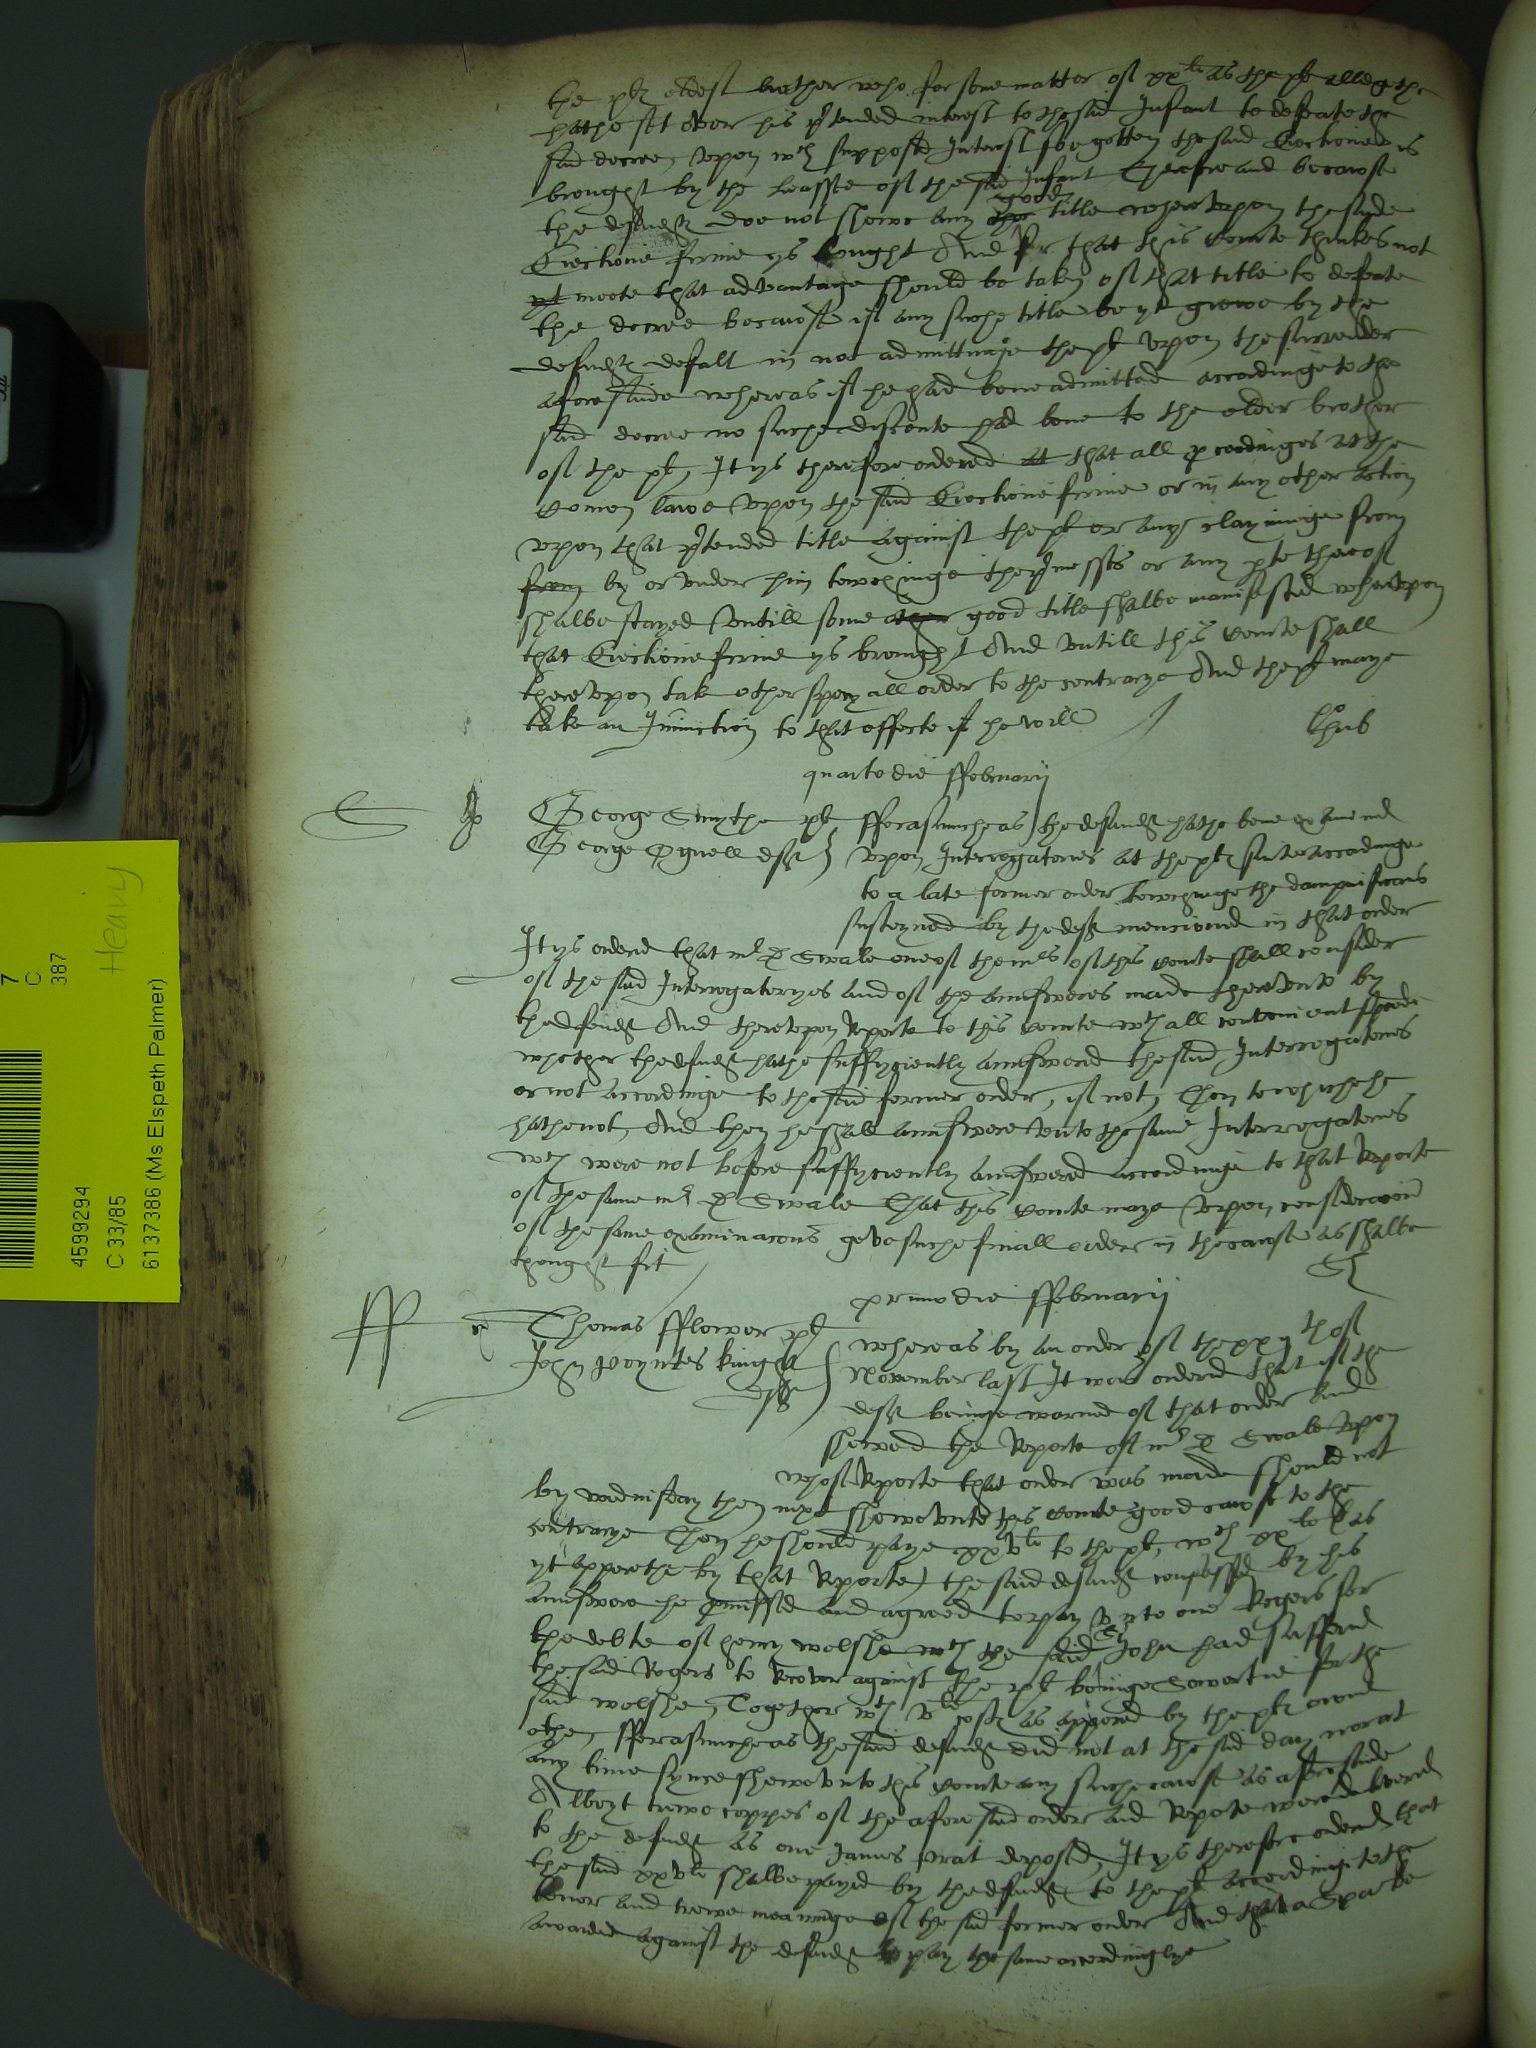 the pl eldest brother who for some matter of xx li as the pl allegethe
hathe set over his ptended interest to the said Infant to defeate the
said decree, upon wch supposed Interest soe gotten the said Eiectione is
brought by the leassee of the said Infant Therefore and because
the defendt doe not shewe any good title whereupon the saide
Eiectione firme ys brought And for that this courte thinkes not
yt meete that advantage should be taken of that title to defeate
the decree because if any suche title be yt growe by the
defendt defalt in not admittinge the pl upon the surrender
aforesaide whereas if he had bene admitted accordinge to the
said decree no suche discente had bene to the elder brother
of the pl, It ys therefore ordered that all pceedinges at the
comon lawe upon the said Eiectione firme or in any other action
upon that ptended title against the pl or any clayminge from
from by or under him towchinge the pmisses or any pte thereof
shalbe stayed untill some other good title shalbe manifested whereupon
that Eiectione firme ys brought And untill this courte shall
thereupon take other specyall order to the contrarye And the pl maye
take an Iniunction to that effecte if he will
quarto die ffebruarij
George Smythe pl fforasmuche as the defendt hathe bene examined
George Ognell deft upon Interrogatories at the pl suite accordinge
to a late former order towchinge the
susteyned by the deft mencioned in that order
It ys ordered that mr D Swale one of the mrs of this courte shall consider
of the said Interrogatoryes and of the answeres made thereunto by
the defendt And thereupon Reporte to this courte wth all convenient speede
whether the defendt hathe suffyciently answered the said Interrogatories
or not accordinge to the said former order, if not, Then to which he
hathe not, And then he shall answere unto the same Interrogatories
wch were not before suffyciently answered accordinge to that Reporte
of the same mr D Swale That this courte maye upon consideracion
of the same examinacons geve suche finall order in the cause as shalbe
thought fit
primo die ffebruarij
Thomas fflower pl whereas by an order of the xxvth of
John poyntes knight November last It was ordered that if the
deft deft beinge warned of that order and
shewed the Reporte of mr D Swale upon
whose Reporte that order was made should not
by wednisday then next shewe unto this courte good cause to the
contrarye Then he should paye xxv li to the pl, wch xx li (as
yt apperethe by that Reporte) the said defendt confessed by his
answere he pmissed and agreed to pay unto one Rogers for
the debte of henry welshe wch the said Sr John had suffered
the said Rogers to Recover against the pl beinge suertie for the
said welshe, Together wth v li costs as appered by the pl owne
othe, fforasmuche as the said defendt did not at the said day nor at
any time synce shewe unto this courte any suche cause as aforesaide
Albeyt trewe coppes of the aforesaid order and Reporte were delivered
to the defendt as one James deposed, It ys therefore ordered that
the said xxv li shalbe payed by the defendt to the pl accordinge to the
tenor and trewe meaninge of the said former order And that a Spa be
awarded against the defendt to pay the same accordinglye
7
C
387
Heavy
4599294
C 33/85
6137386 (Ms Elspeth Palmer)